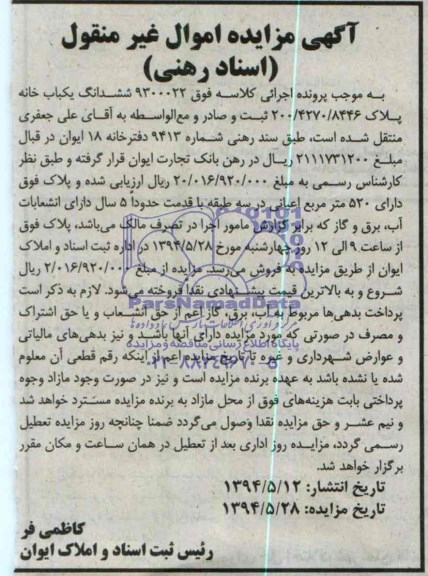 آگهی مزایده اموال غیر منقول
(اسناد رهنی)
به موجب پرونده اجرائی کلاسه فوق ۹۳۰۰۰۲۲ ششدانگ یکباب خانه
پلاک ۲۰۰/۴۲۷۰/۸۴۴۶ ثبت و صادر و مع‌الواسطه به آقای علی جعفری
منتقل شده است، طبق سند رهنی شماره ۹۴۱۳ دفترخانه ۱۸ ایوان در قبال
مبلغ ۲۱۱۱۷۳۱۲۰۰ ریال در رهن بانک تجارت ایوان قرار گرفته و طبق نظر
کارشناس رسمی به مبلغ ۲۰/۰۱۶/۹۲۰/۰۰۰ ریال ارزیابی شده و پلاک فوق
دارای ۵۲۰ متر مربع اعیانی در سه طبقه با قدمت حدوداً ۵ سال دارای انشعابات
آب، برق و گاز که برابر گزارش مامور اجرا در تصرف مالک می‌باشد، پلاک فوق
از ساعت ۹ الی ۱۲ روز چهارشنبه مورخ ۱۳۹۴/۵/۲۸ در اداره ثبت اسناد و املاک
ایوان از طریق مزایده به فروش می‌رسد. مزایده از مبلغ ۲/۰۱۶/۹۲۰/۰۰۰ ریال
شروع و به بالاترین قیمت پیشنهادی نقدا فروخته می‌شود. لازم به ذکر است
پرداخت بدهی‌ها مربوط به آب، برق، گاز اعم از حق انشعاب و یا حق اشتراک
و مصرف در صورتی که مورد مزایده دارای آنها باشد و نیز بدهی‌های مالیاتی
و عوارض شهرداری و غیره تا تاریخ مزایده اعم از اینکه رقم قطعی آن معلوم
شده یا نشده باشد به عهده برنده مزایده است و نیز در صورت وجود مازاد وجوه
پرداختی بابت هزینه‌های فوق از محل مازاد به برنده مزایده مسترد خواهد شد
و نیم عشر و حق مزایده نقدا وصول می‌گردد ضمنا چنانچه روز مزایده تعطیل
رسمی گردد، مزایده روز اداری بعد از تعطیل در همان ساعت و مکان مقرر
برگزار خواهد شد.
تاریخ انتشار: ۱۳۹۴/۵/۱۲
تاریخ مزایده: ۱۳۹۴/۵/۲۸
کاظمی فر
رئیس ثبت اسناد و املاک ایوان
ParsNamadData
پایگاه اطلاع رسانی مناقصه و مزایده
۰۲۱-۸۸۳۴۹۶۷۰-۵